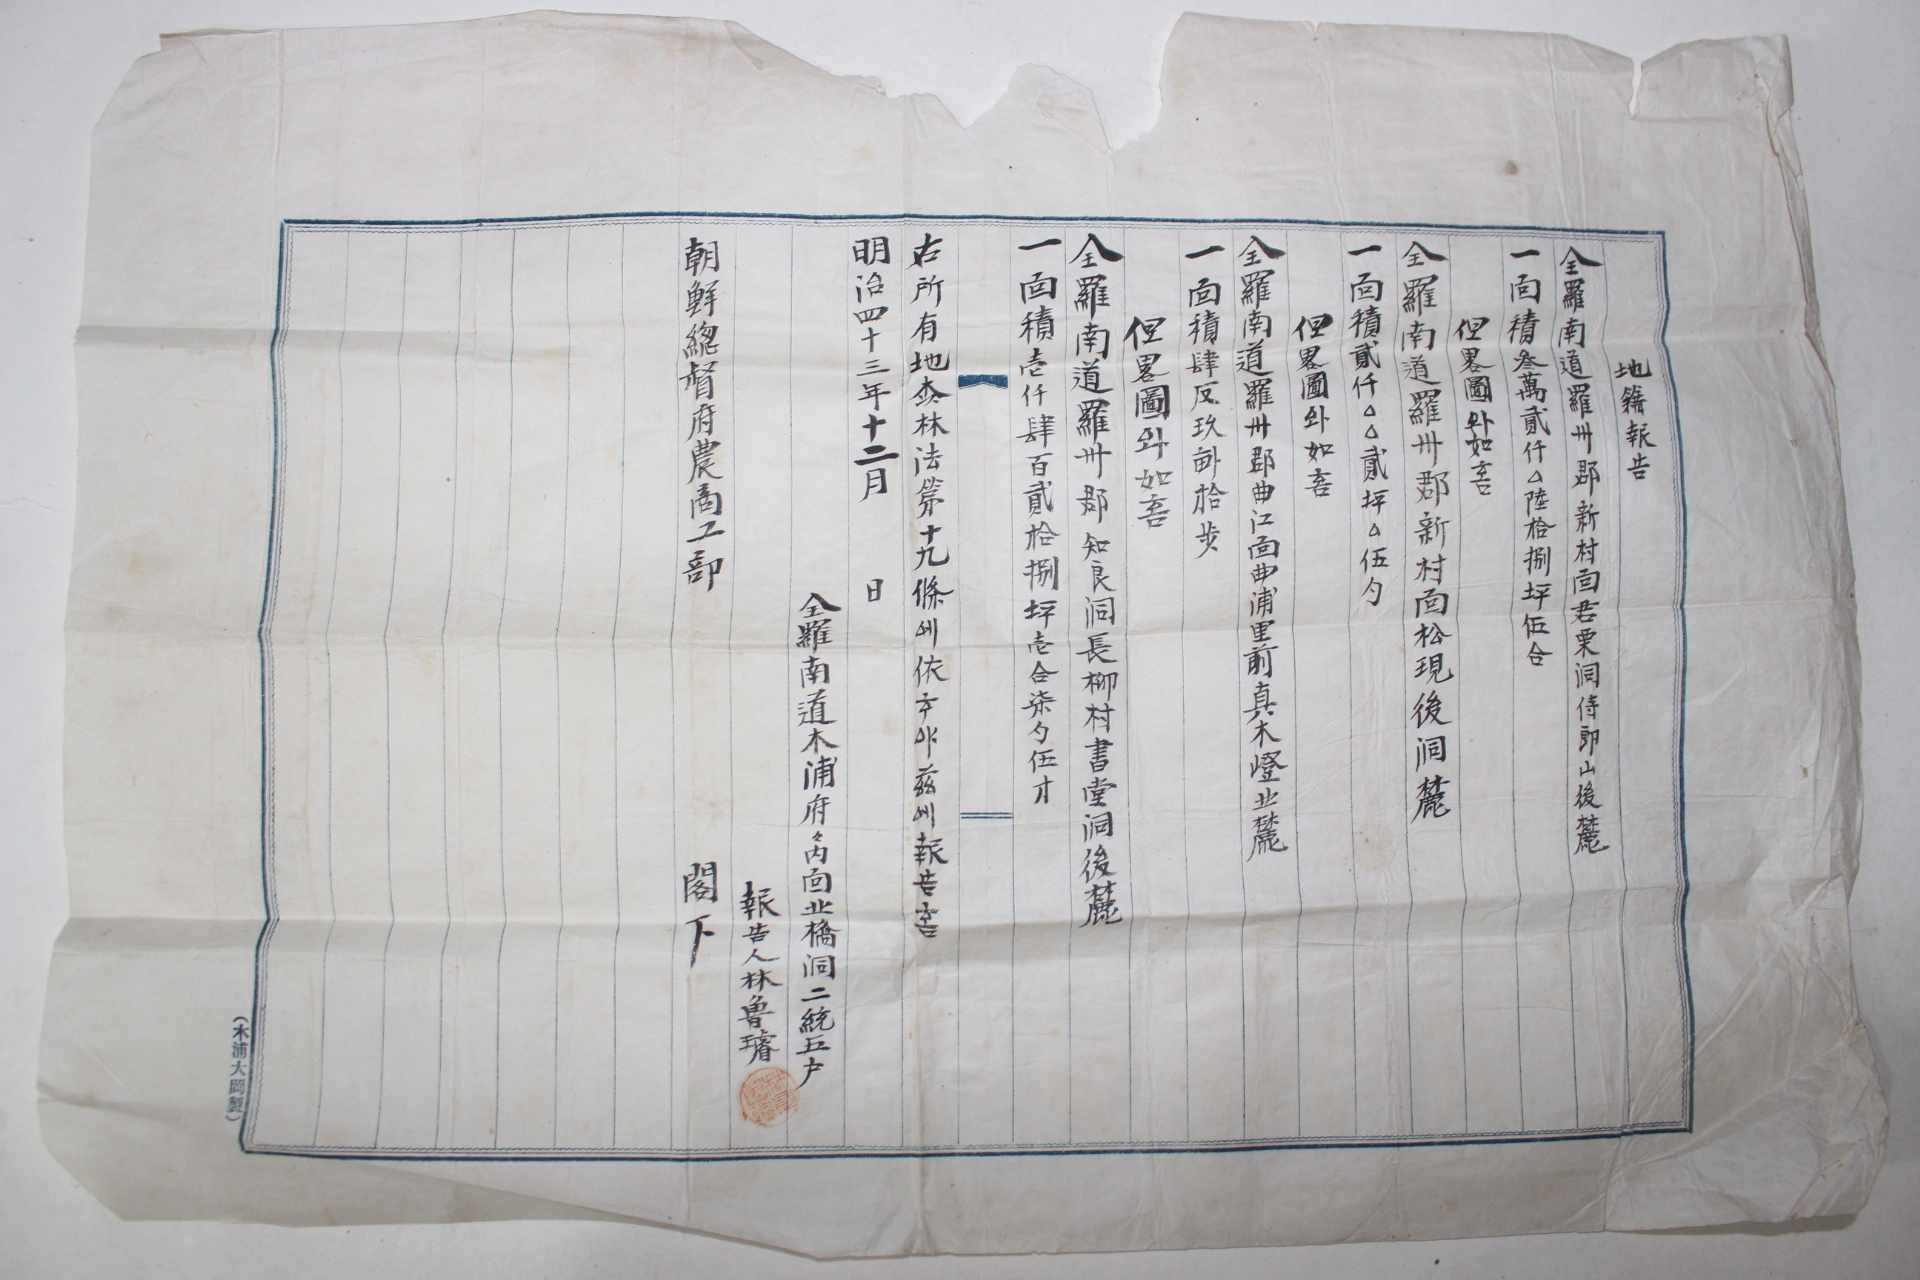 地籍報告
全羅南道羅州郡新村面君栗洞侍郎山後麓
一面積叁萬貳仟△陸拾捌坪伍合
但畧圖와如홈
全羅南道羅州郡新村面松現後洞麓
一面積貳仟△△貳坪△伍勺
但畧圖와如홈
全羅南道羅州郡曲江面曲浦里前真木嶝北麓
一面積肆反玖畝拾步
但畧圖와如홈
全羅南道羅州郡知良洞長柳村書堂洞後麓
一面積壱仟肆百貳拾捌坪壱合柒勺伍才
右所有地森林法第十九條에依하야玆에報告홈
明治四十三年十二月 日
全羅南道木浦府々內面北橋洞二統五戶
報告人林魯璿
朝鮮總督府農商工部 閣下
(木浦大岡製)